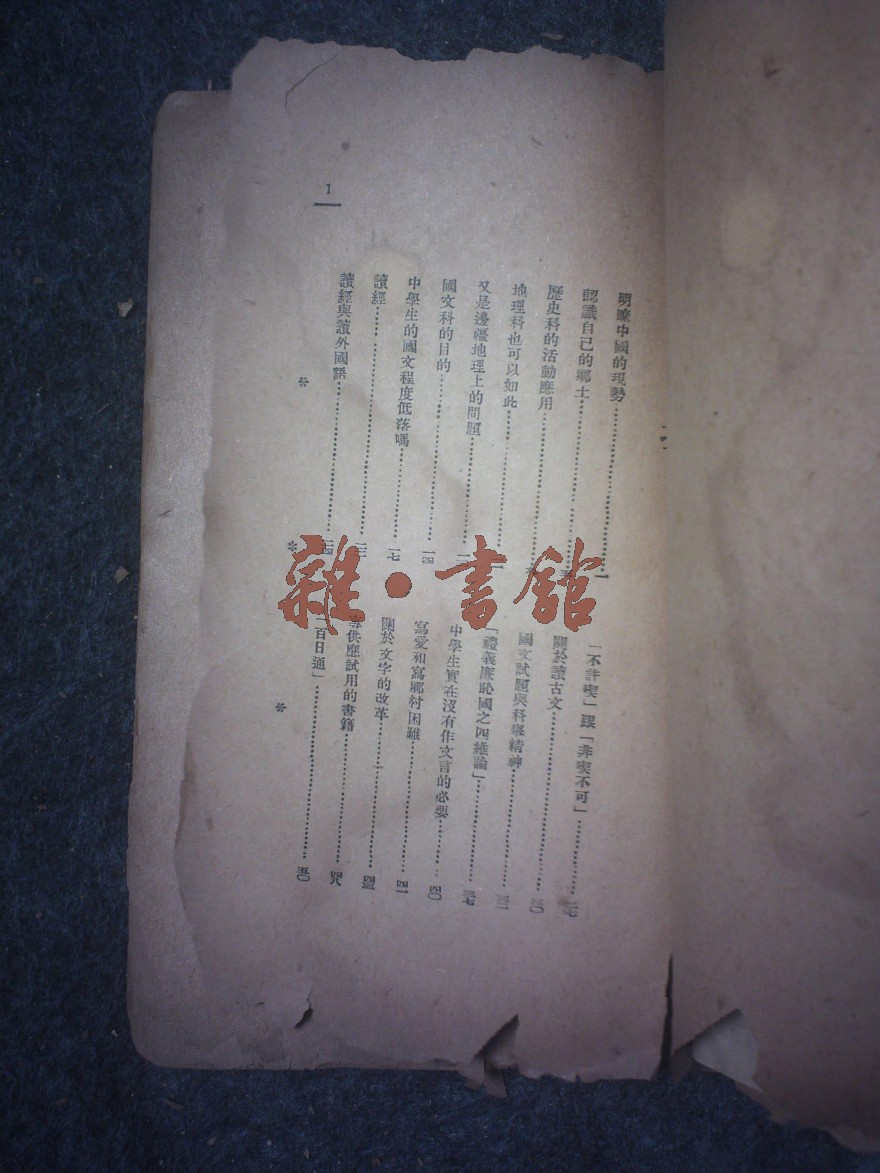 1
明瞭中國的現勢…………一
認識自己的鄉土…………
歷史科的活動應用…………
地理科也可以如此…………
又是邊疆地理上的問題…………
國文科的目的…………一四
中學生的國文程度低落嗎…………一七
讀經…………二三
讀經與讀外國語…………二四
* * *
「不許喫」跟「非喫不可」…………二七
關於讀古文…………三〇
國文試題與科舉精神…………三二
「禮義廉恥國之四維論」…………三七
中學生實在沒有作文言的必要…………四〇
寫愛和寫鄉村困難…………四一
關於文字的改革…………四三
供應試用的書籍…………四八
「一百日通」…………五〇
雜·書館